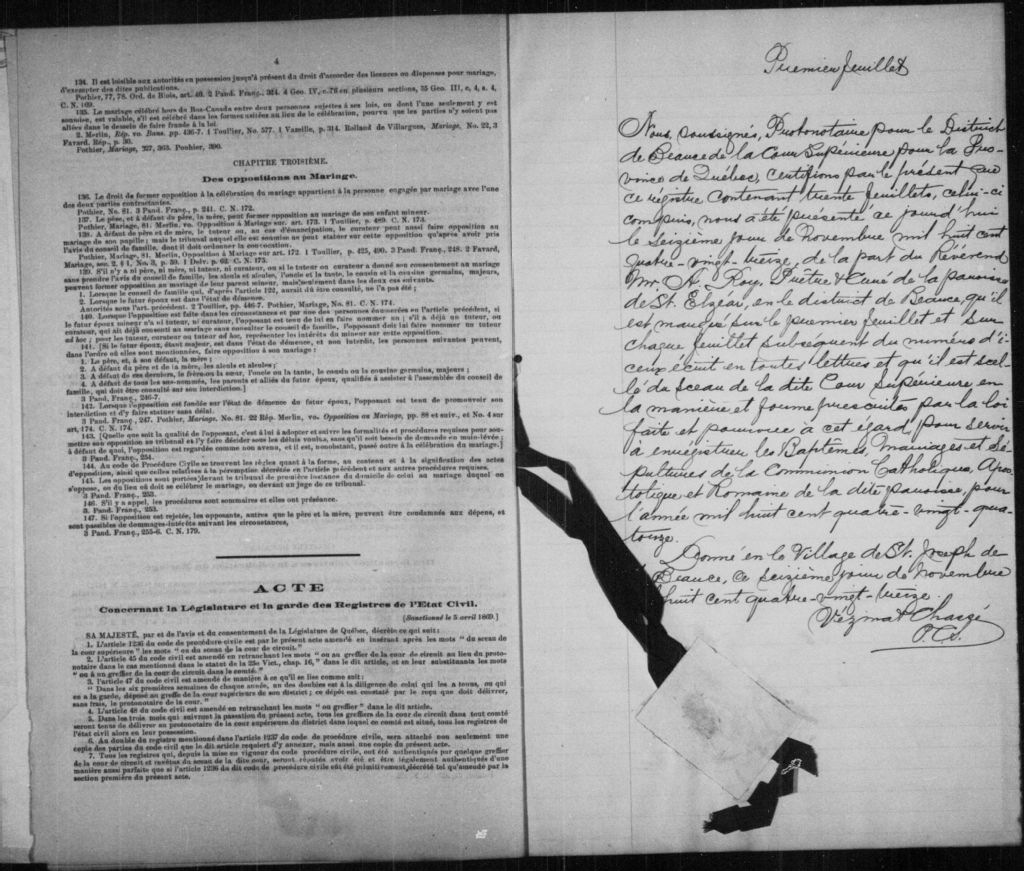 4
134. Il est loisible aux autorités en possession jusqu'à présent du droit d'accorder des licences ou dispenses pour mariage,
d'exempter des dites publications.
Pothier, 77, 78. Ord. de Blois, art. 40. 2 Pand. Franç., 324. 4 Geo. IV, c. 76 en plusieurs sections, 35 Geo. III, c. 4, s. 4,
C. N. 169.
135. Le mariage célébré hors du Bas-Canada entre deux personnes sujettes à ses lois, ou dont l'une seulement y est
soumise, est valable, s'il est célébré dans les formes usitées au lieu de la célébration, pourvu que les parties n'y soient pas
allées dans le dessein de faire fraude à la loi.
2. Merlin, Rép. vo. Bans. pp. 436-7. 1 Toullier, No. 577. 1 Vazeille, p. 314. Rolland de Villargues, Mariage, No. 22, 3
Favard. Rép., p. 30.
Pothier, Mariage, 227, 363. Pouhier, 390.
CHAPITRE TROISIÈME.
Des oppositions au Mariage.
136. Le droit de former opposition à la célébration du mariage appartient à la personne engagée par mariage avec l'une
des deux parties contractantes.
Pothier, No. 81. 3 Pand. Franç., p. 241. C. N. 172.
137. Le père, et à défaut de père, la mère, peut former opposition au mariage de son enfant mineur.
Pothier, Mariage, 81. Merlin, vo. Opposition à Mariage sur. art. 173. 1 Toullier, p. 489. C. N. 173.
138. A défaut de père et de mère, le tuteur ou, au cas d'émancipation, le curateur peut aussi faire opposition au
mariage de son pupille; mais le tribunal auquel elle est soumise ne peut statuer sur cette opposition qu'après avoir pris
l'avis du conseil de famille, dont il doit ordonner la convocation.
Pothier, Mariage, 81. Merlin, Opposition à Mariage sur art. 172. 1 Toullier, p. 425, 490. 3 Pand. Franç., 248. 2 Favard,
Mariage, sec. 2, § 1, No. 3, p. 59. 1 Delv. p. 62. C. N. 173.
139. S'il n'y a ni père, ni mère, ni tuteur, ni curateur, ou si le tuteur ou curateur a donné son consentement au mariage
sans prendre l'avis du conseil de famille, les aïeuls et aïeules, l'oncle et la tante, le cousin et la cousine germains, majeurs,
peuvent former opposition au mariage de leur parent mineur, mais seulement dans les deux cas suivants.
1. Lorsque le conseil de famille qui, d'après l'article 122, aurait dû être consulté, ne l'a pas été;
2. Lorsque le futur époux est dans l'état de démence.
Autorités sous l'art. précédent. 2 Toullier, pp. 466-7. Pothier, Mariage, No. 81. C. N. 174.
140. Lorsque l'opposition est faite dans les circonstances et par une des personnes énumérées en l'article précédent, si
le futur époux mineur n'a ni tuteur, ni curateur, l'opposant est tenu de lui en faire nommer un; s'il a déjà un tuteur, ou
curateur, qui ait déjà consenti au mariage sans consulter le conseil de famille, l'opposant doit lui faire nommer un tuteur
ad hoc; pour les tuteur, curateur ou tuteur ad hoc, représenter les intérêts du mineur sur cette opposition.
141. [Si le futur époux, étant majeur, est dans l'état de démence, et non interdit, les personnes suivantes peuvent,
dans l'ordre où elles sont mentionnées, faire opposition à son mariage:
1. Le père, et, à son défaut, la mère;
2. A défaut du père et de la mère, les aïeuls et aïeules;
3. A défaut de ces derniers, le frère ou la sœur, l'oncle ou la tante, le cousin ou la cousine germains, majeurs;
4. A défaut de tous les sus-nommés, les parents et alliés du futur époux, qualifiés à assister à l'assemblée du conseil de
famille, qui doit être consulté sur son interdiction.]
3 Pand. Franç., 246-7.
142. Lorsque l'opposition est fondée sur l'état de démence du futur époux, l'opposant est tenu de promouvoir son
interdiction et d'y faire statuer sans délai.
3 Pand. Franç., 247. Pothier, Mariage, No. 81. 22 Rép. Merlin, vo. Opposition au Mariage, pp. 88 et suiv., et No. 4 sur
art, 174. C. N. 174.
143. [Quelle que soit la qualité de l'opposant, c'est à lui à adopter et suivre les formalités et procédures requises pour sou-
mettre son opposition au tribunal et l'y faire décider sous les délais voulus, sans qu'il soit besoin de demande en main-levée;
à défaut de quoi, l'opposition est regardée comme non avenu, et il est, nonobstant, passé outre à la célébration du mariage.]
3 Pand. Franç., 254.
144. Au code de Procédure Civile se trouvent les règles quant à la forme, au contenu et à la signification des actes
d'opposition, ainsi que celles relatives à la péremption décrétée en l'article précédent et aux autres procédures requises.
145. Les oppositions sont portées devant le tribunal de première instance du domicile de celui au mariage duquel on
s'oppose, ou du lieu où doit se célébrer le mariage, ou devant un juge de ce tribunal.
3 Pand. Franç., 253.
146. S'il y a appel, les procédures sont sommaires et elles ont préséance.
3. Pand. Franç., 253.
147. Si l'opposition est rejetée, les opposants, autres que le père et la mère, peuvent être condamnés aux dépens, et
sont passibles de dommages-intérêts suivant les circonstances,
3 Pand. Franç., 255-6. C. N. 179.
ACTE
Concernant la Législature et la garde des Registres de l'Etat Civil.
[Sanctionné le 5 avril 1869.]
SA MAJESTÉ, par et de l'avis et du consentement de la Législature de Québec, décrète ce qui suit:
1. L'article 1236 du code de procédure civile est par le présent acte amendé en insérant après les mots "du sceau de
la cour supérieure" les mots "ou du sceau de la cour de circuit."
2. L'article 45 du code civil est amendé en retranchant les mots "ou au greffier de la cour de circuit au lieu du proto-
notaire dans le cas mentionné dans le statut de la 25e Vict., chap. 16," dans le dit article, et en leur substituants les mots
"ou à un greffier de la cour de circuit dans le comté."
3. L'article 47 du code civil est amendé de manière à ce qu'il se lise comme suit:
"Dans les six premières semaines de chaque année, un des doubles est à la diligence de celui qui les a tenus, ou qui
en a la garde, déposé au greffe de la cour supérieure de son district; ce dépôt est constaté par le reçu que doit délivrer,
sans frais, le protonotaire de la cour."
4. L'article 48 du code civil est amendé en retranchant les mots "ou greffier" dans le dit article.
5. Dans les trois mois qui suivront la passation du présent acte, tous les greffiers de la cour de circuit dans tout comté
seront tenus de délivrer au protonotaire de la cour supérieure du district dans lequel ce comté est situé, tous les registres de
l'état civil alors en leur possession.
6. Au double du registre mentionné dans l'article 1237 du code de procédure civile, sera attaché non seulement une
copie des parties du code civil que le dit article requiert d'y annexer, mais aussi une copie du présent acte.
7. Tous les registres qui, depuis la mise en vigueur du code procédure civile, ont été authentiqués par quelque greffier
de la cour de circuit et revêtus du sceau de la dite cour, seront réputés avoir été et être légalement authentiqués d'une
manière aussi parfaite que si l'article 1236 du dit code de procédure civile eût été primitivement décrété tel qu'amendé par la
section première du présent acte.
Premier feuillet
Nous, soussignés, Protonotaire pour le District
de Beauce de la Cour Supérieure pour la Pro-
vince de Québec, certifions par le présent que
ce régistre contenant trente feuillets, celui-ci
compris, nous a été présenté ce jourd'hui
le seizième jour de Novembre mil huit cent
quatre-vingt-treize, de la part du Révérend
Mr. A. Roy, Prêtre & Curé de la paroisse
de St. Elzéar, en le district de Beauce, qu'il
est marqué sur le premier feuillet et sur
chaque feuillet subséquent du numéro d'i-
ceux écrit en toutes lettres et qu'il est scel-
lé du sceau de la dite Cour Supérieure en
la manière et forme prescrites par la loi
faite et pourvue à cet égard, pour servir
à enregistrer les Baptêmes, Mariages et Sé-
pultures de la Communion Catholique, Apos-
tolique et Romaine de la dite paroisse, pour
l'année mil huit cent quatre-vingt-qua-
torze.
Donné en le Village de St. Joseph de
Beauce, ce seizième jour de Novembre
huit cent quatre-vingt-treize.
Vézina & Chassé
P.C.S.